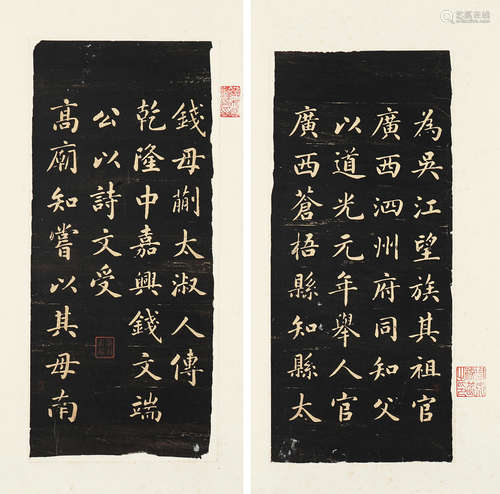 錢母蒯太淑人傳
乾隆中嘉興錢文端
公以詩文受
高廟知嘗以其母南
為吳江望族其祖官
廣西泗州府同知父
以道光元年舉人官
廣西蒼梧縣知縣太